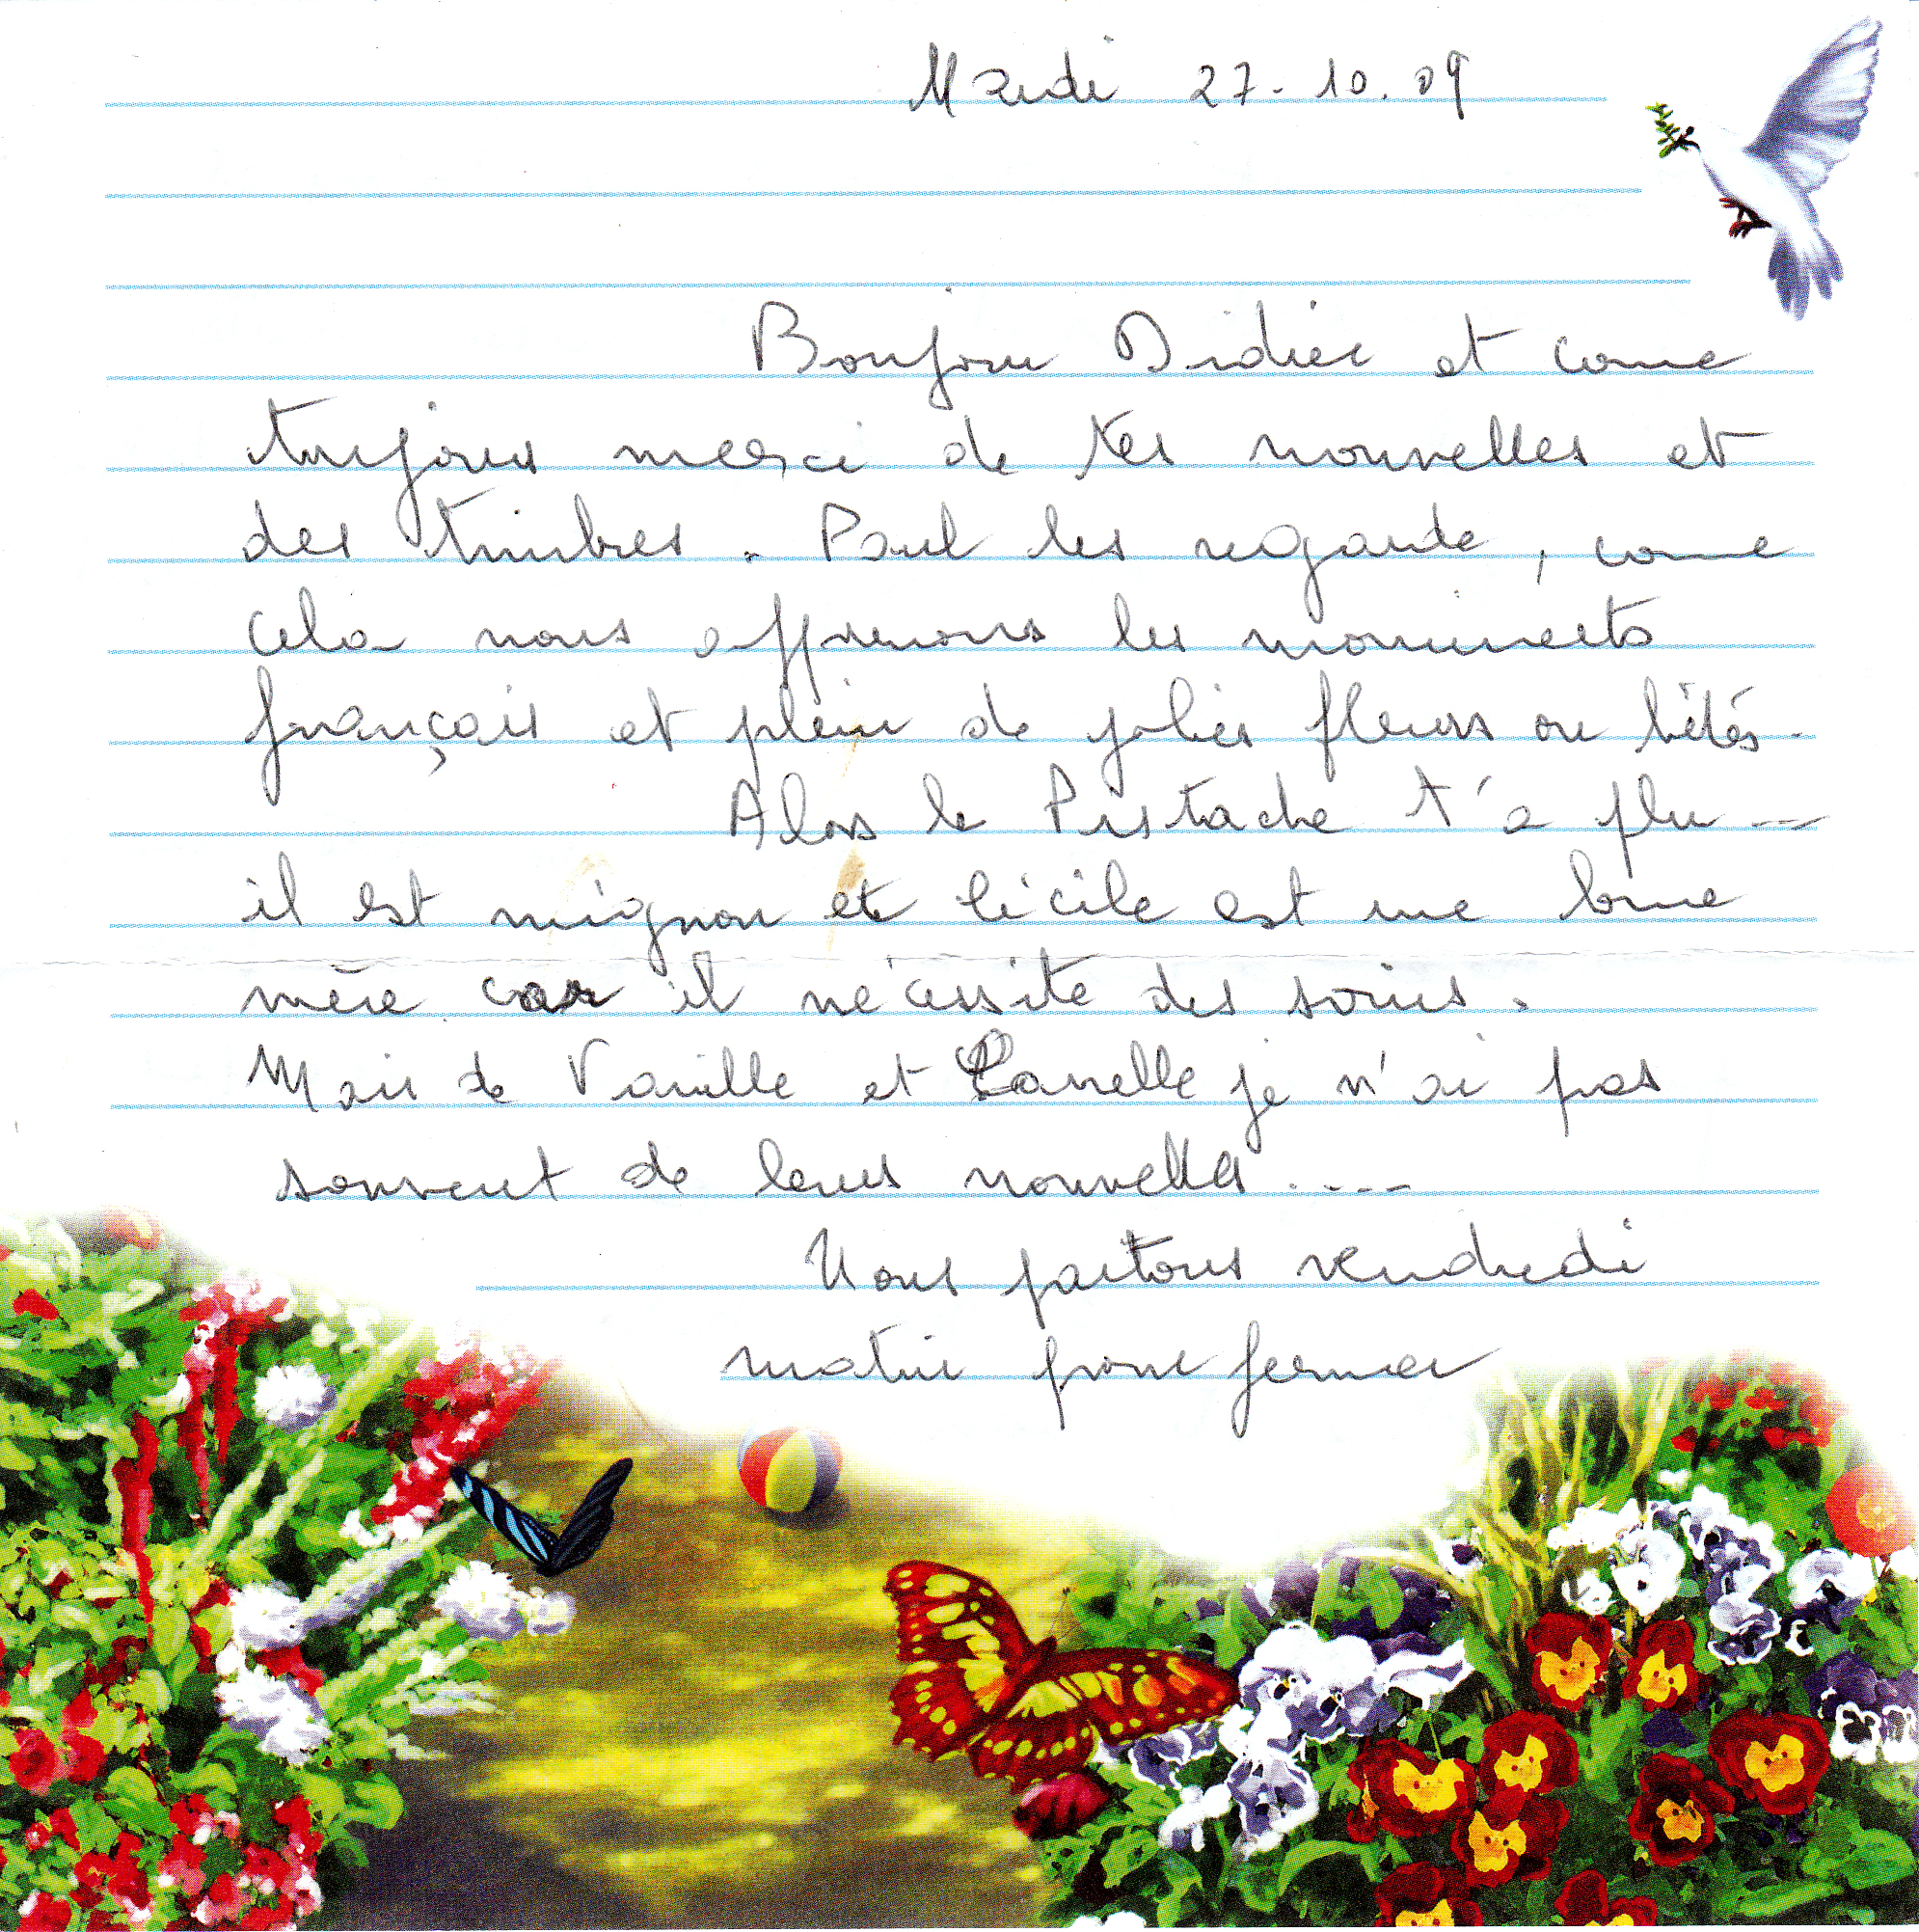 Mardi 27.10.09
Bonjour Didier et comme
toujours merci de tes nouvelles et
des timbres. Paul les regarde, comme
cela nous apprenons les monuments
français et plein de jolies fleurs ou bêtes.
Alors le Pistache t'a plu ...
il est mignon et Cécile est une bonne
mère car il nécessite des soins.
Mais de Vanille et Canelle je n'ai pas
souvent de leurs nouvelles ....
Nous partons vendredi
matin pour fermer